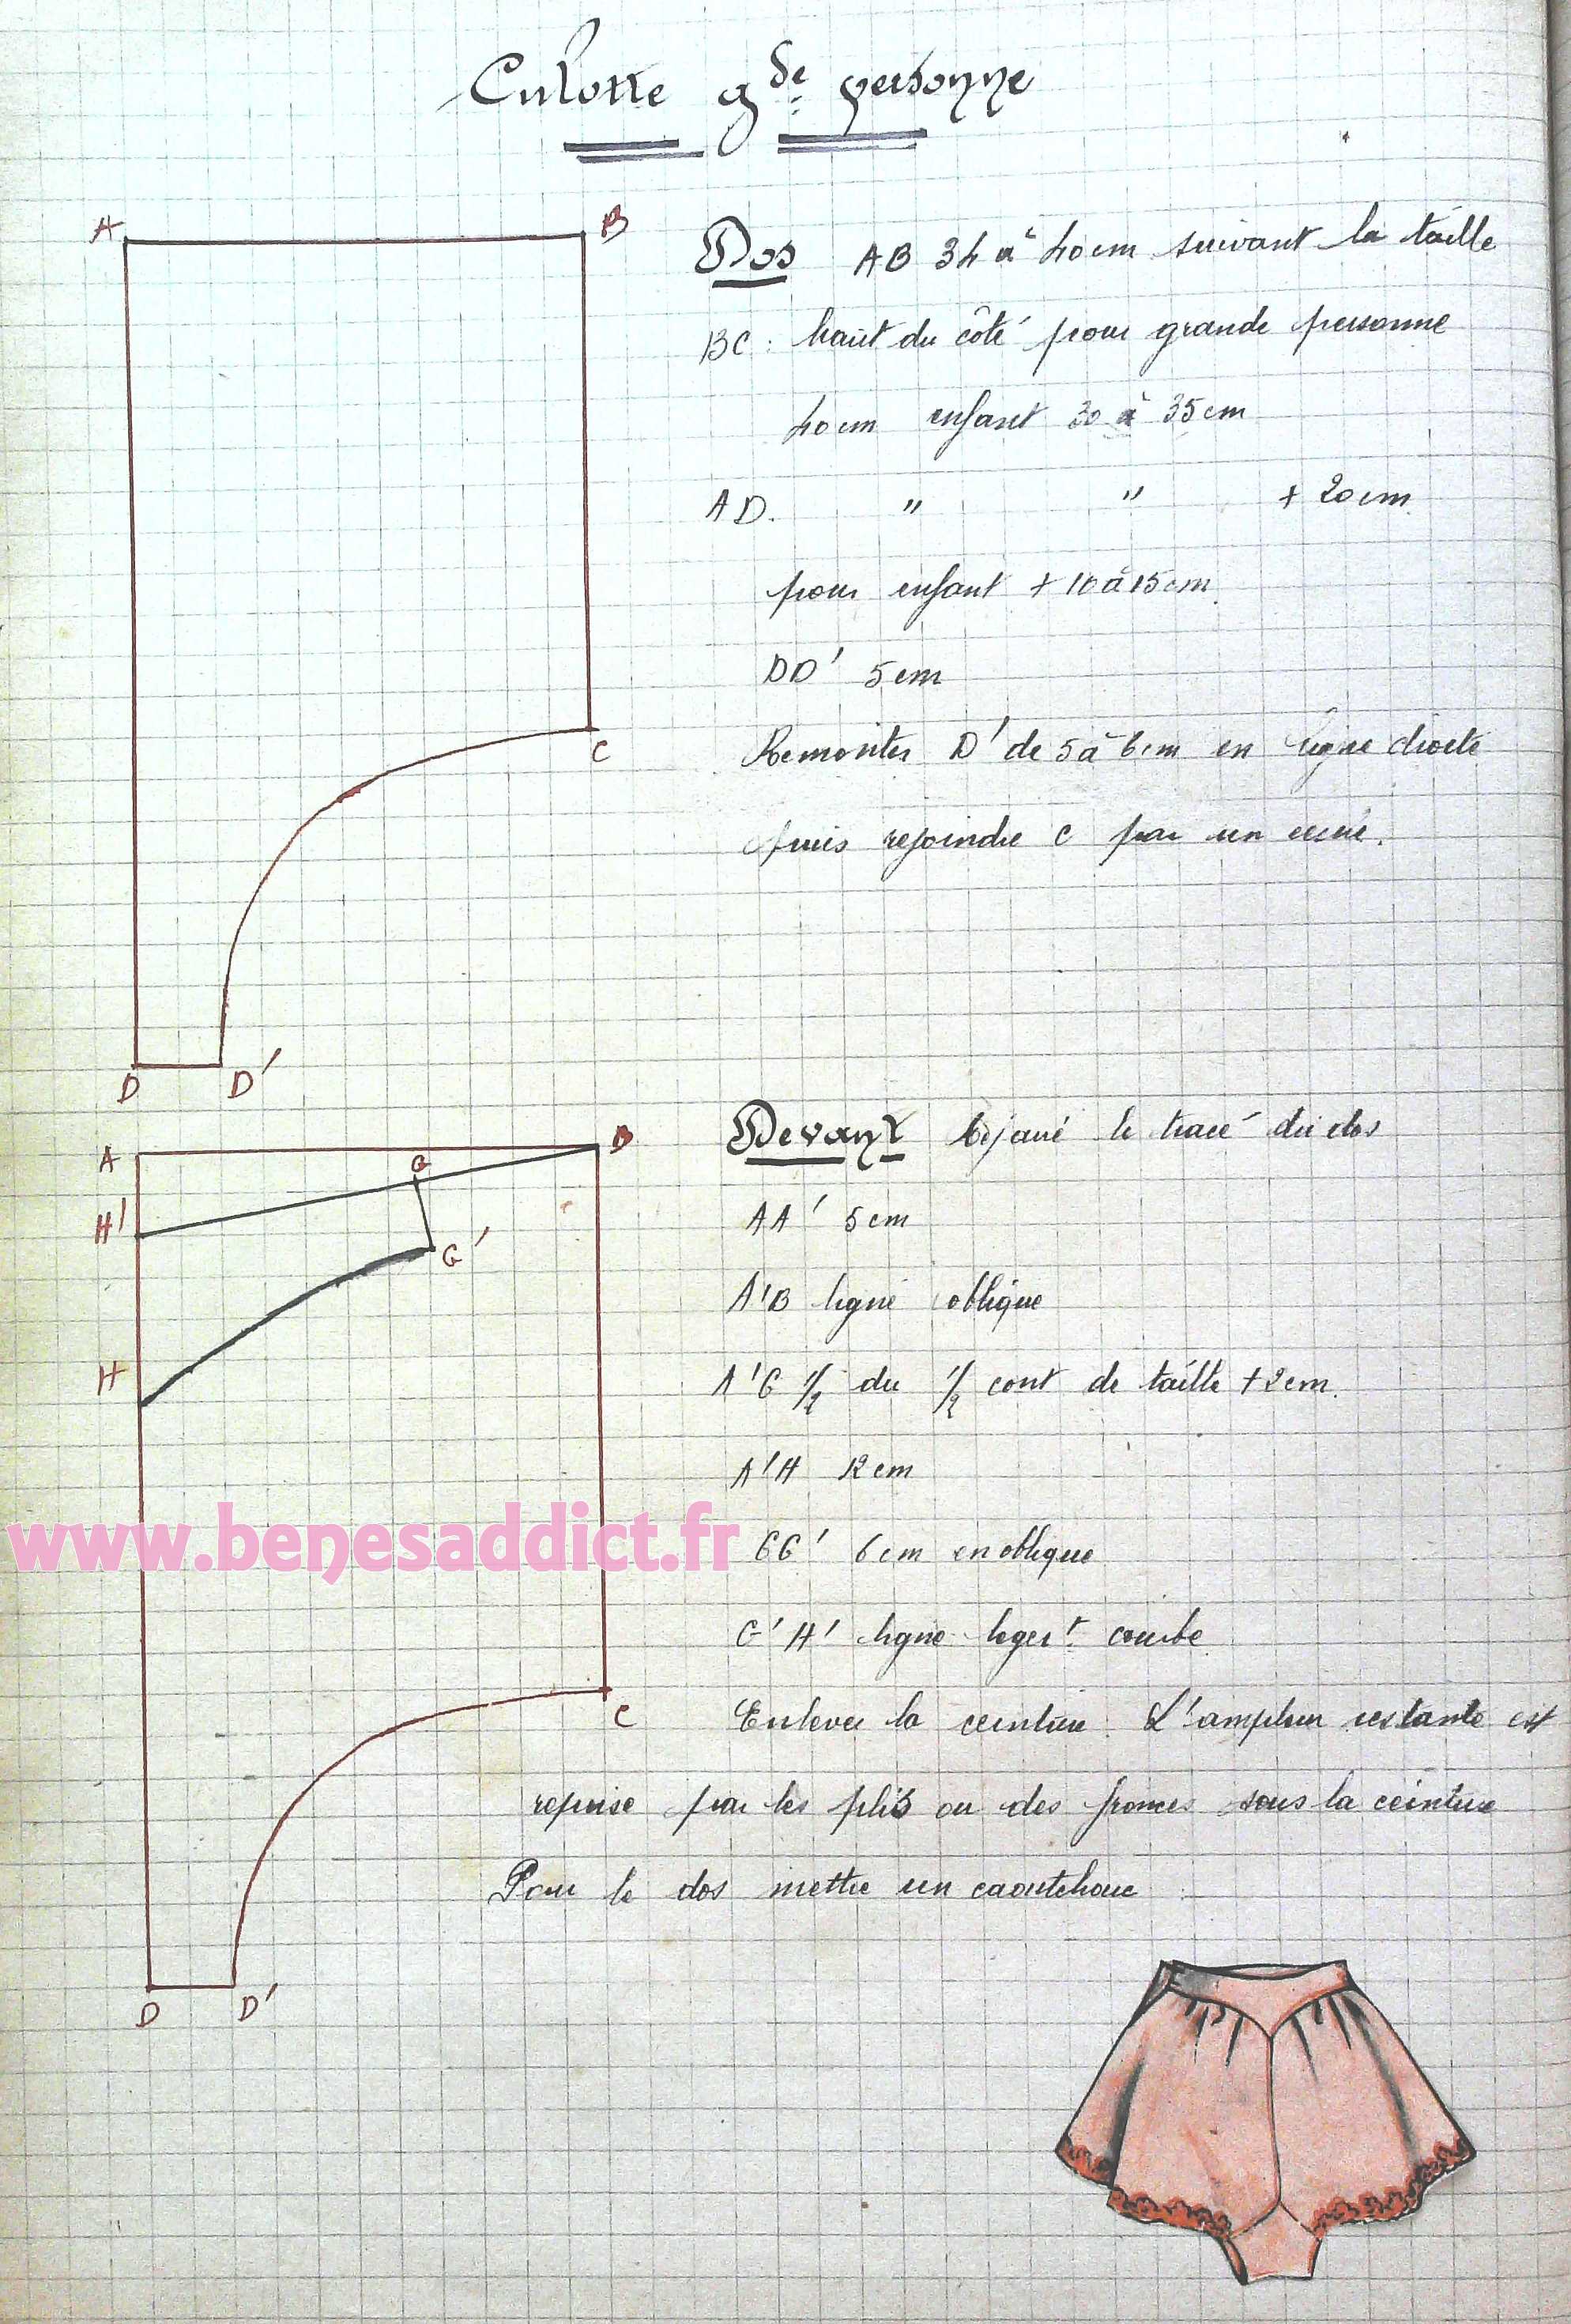 Culotte gde personne
A
B
Dos AB 34 à 40cm suivant la taille
BC : haut du côté pour grande personne
40cm enfant 30 à 35cm
AD. " " + 20cm
pour enfant + 10 à 15cm.
DD' 5cm
Remonter D' de 5 à 6cm en ligne droite
C
puis rejoindre C par un
D
D'
Devant le tracé du dos
A
B
G
H'
G'
AA' 5cm
A'B ligne oblique
H
A'G 1/2 du 1/2 cont de taille + 2cm.
A'H 12cm
www.benesaddict.fr
GG' 6cm en oblique
G'H' ligne legert courbe
C
Enlever la ceinture. L'ampleur restante est
reprise par les plis ou des fronces sous la ceinture
Pour le dos mettre un caoutchouc
D
D'